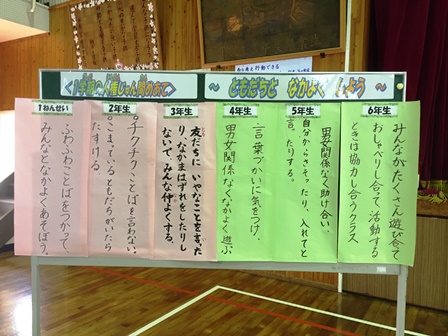 <1学期の人権じゅん間のめあて>
～ ともだちと なかよく しよう ～
1ねんせい
ふわふわことばをつかって、
みんなとなかよくあそぼう。
2年生
○チクチクことばを言わない。
○こまっているともだちがいたら
たすける。
3年生
友だちに いやなことを言った
り、なかまはずれをしたりし
ないで、みんな仲よくする。
4年生
言葉づかいに気をつけ、
男女関係なくなかよく遊ぶ
5年生
男女関係なく助け合い、
自分からさそったり、入れてと
言ったりする。
6年生
みんながたくさん遊び合って
おしゃべりし合って、活動する
ときは協力し合うクラス